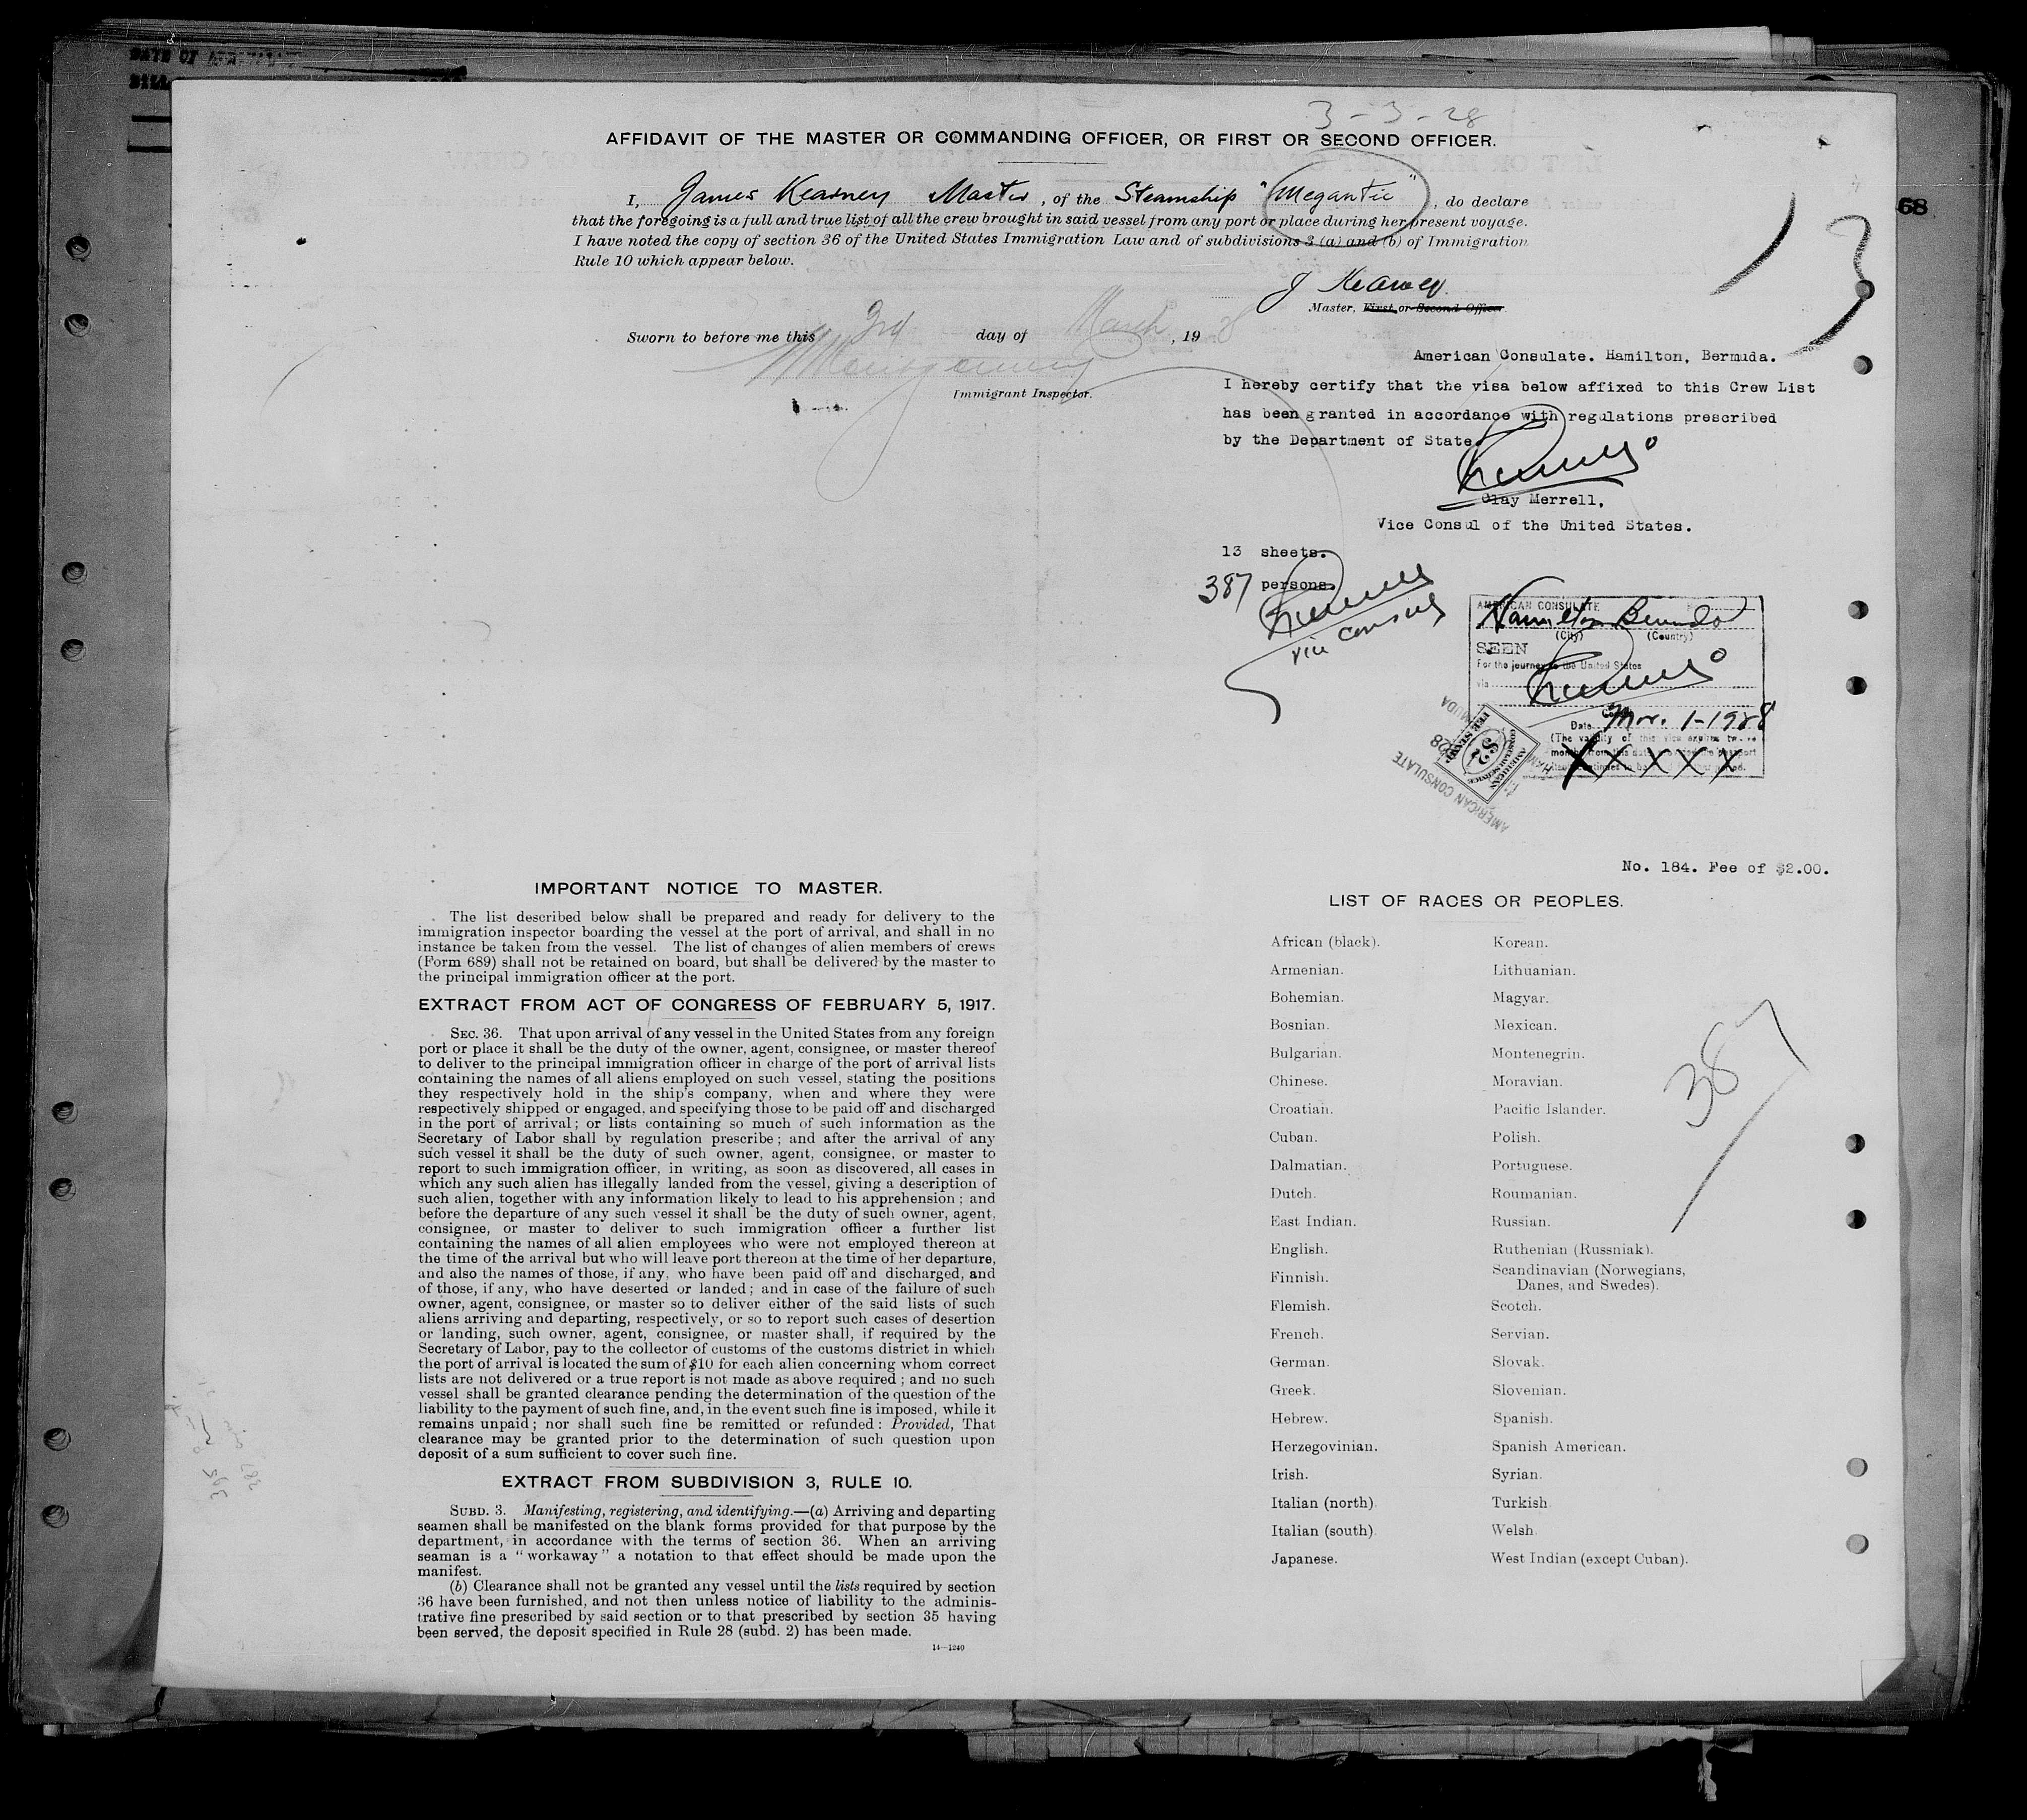 3-3-28
AFFIDAVIT OF THE MASTER OR COMMANDING OFFICER, OR FIRST OR SECOND OFFICER.
I, James Kearney Master, of the Steamship "Megantic", do declare
that the foregoing is a full and true list of all the crew brought in said vessel from any port or place during her present voyage.
I have noted the copy of section 36 of the United States Immigration Law and of subdivisions 3 (a) and (b) of Immigration
Rule 10 which appear below.
68
13
J Kearney
Master, First or Second Officer.
Sworn to before me this 3rd day of March, 19 8
Immigrant Inspector.
American Consulate. Hamilton, Bermuda.
I hereby certify that the visa below affixed to this Crew List
has been granted in accordance with regulations prescribed
by the Department of State.
Clay Merrell,
Vice Consul of the United States.
13 sheets.
387 persons.
vice consul
AMERICAN CONSULATE
Hamilton Bermuda
(City) (Country)
SEEN
For the journey to the United States
via
Date Mar. 1-1928
(The validity of this vise expires twelve
XXXXX
AMERICAN CONSULAR SERVICE
$2
FEE STAMP
AMERICAN CONSULATE
No. 184. Fee of $2.00.
IMPORTANT NOTICE TO MASTER.
The list described below shall be prepared and ready for delivery to the
immigration inspector boarding the vessel at the port of arrival, and shall in no
instance be taken from the vessel. The list of changes of alien members of crews
(Form 689) shall not be retained on board, but shall be delivered by the master to
the principal immigration officer at the port.
EXTRACT FROM ACT OF CONGRESS OF FEBRUARY 5, 1917.
SEC. 36. That upon arrival of any vessel in the United States from any foreign
port or place it shall be the duty of the owner, agent, consignee, or master thereof
to deliver to the principal immigration officer in charge of the port of arrival lists
containing the names of all aliens employed on such vessel, stating the positions
they respectively hold in the ship's company, when and where they were
respectively shipped or engaged, and specifying those to be paid off and discharged
in the port of arrival; or lists containing so much of such information as the
Secretary of Labor shall by regulation prescribe; and after the arrival of any
such vessel it shall be the duty of such owner, agent, consignee, or master to
report to such immigration officer, in writing, as soon as discovered, all cases in
which any such alien has illegally landed from the vessel, giving a description of
such alien, together with any information likely to lead to his apprehension; and
before the departure of any such vessel it shall be the duty of such owner, agent,
consignee, or master to deliver to such immigration officer a further list
containing the names of all alien employees who were not employed thereon at
the time of the arrival but who will leave port thereon at the time of her departure,
and also the names of those, if any, who have been paid off and discharged, and
of those, if any, who have deserted or landed; and in case of the failure of such
owner, agent, consignee, or master so to deliver either of the said lists of such
aliens arriving and departing, respectively, or so to report such cases of desertion
or landing, such owner, agent, consignee, or master shall, if required by the
Secretary of Labor, pay to the collector of customs of the customs district in which
the port of arrival is located the sum of $10 for each alien concerning whom correct
lists are not delivered or a true report is not made as above required; and no such
vessel shall be granted clearance pending the determination of the question of the
liability to the payment of such fine, and, in the event such fine is imposed, while it
remains unpaid; nor shall such fine be remitted or refunded: Provided, That
clearance may be granted prior to the determination of such question upon
deposit of a sum sufficient to cover such fine.
EXTRACT FROM SUBDIVISION 3, RULE 10.
SUBD. 3. Manifesting, registering, and identifying.—(a) Arriving and departing
seamen shall be manifested on the blank forms provided for that purpose by the
department, in accordance with the terms of section 36. When an arriving
seaman is a "workaway" a notation to that effect should be made upon the
manifest.
(b) Clearance shall not be granted any vessel until the lists required by section
36 have been furnished, and not then unless notice of liability to the adminis-
trative fine prescribed by said section or to that prescribed by section 35 having
been served, the deposit specified in Rule 28 (subd. 2) has been made.
14—1240
LIST OF RACES OR PEOPLES.
African (black).
Armenian.
Bohemian.
Bosnian.
Bulgarian.
Chinese.
Croatian.
Cuban.
Dalmatian.
Dutch.
East Indian.
English.
Finnish.
Flemish.
French.
German.
Greek.
Hebrew.
Herzegovinian.
Irish.
Italian (north).
Italian (south).
Japanese.
Korean.
Lithuanian.
Magyar.
Mexican.
Montenegrin.
Moravian.
Pacific Islander.
Polish.
Portuguese.
Roumanian.
Russian.
Ruthenian (Russniak).
Scandinavian (Norwegians,
Danes, and Swedes).
Scotch.
Servian.
Slovak.
Slovenian.
Spanish.
Spanish American.
Syrian.
Turkish.
Welsh.
West Indian (except Cuban).
387